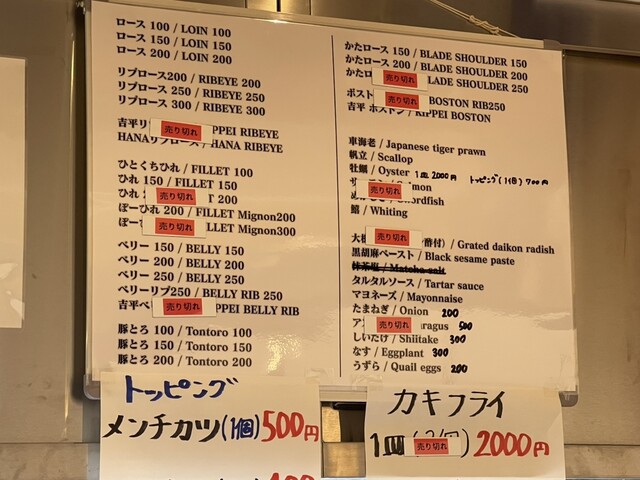 ロース 100 / LOIN 100
ロース 150 / LOIN 150
ロース 200 / LOIN 200
リブロース200 / RIBEYE 200
リブロース 250 / RIBEYE 250
リブロース 300 / RIBEYE 300
吉平リ 売り切れ PPEI RIBEYE
HANAリブロース / HANA RIBEYE
ひとくちひれ / FILLET 100
ひれ 150 / FILLET 150
ひれ 売り切れ T 200
ぽーひれ 200 / FILLET Mignon200
ぽー 売り切れ LLET Mignon300
ベリー 150 / BELLY 150
ベリー 200 / BELLY 200
ベリー 250 / BELLY 250
ベリーリブ250 / BELLY RIB 250
吉平ベ 売り切れ PPEI BELLY RIB
豚とろ 100 / Tontoro 100
豚とろ 150 / Tontoro 150
豚とろ 200 / Tontoro 200
かたロース 150 / BLADE SHOULDER 150
かたロース 200 / BLADE SHOULDER 200
かたロ 売り切れ LADE SHOULDER 250
ボスト 売り切れ BOSTON RIB250
吉平 ボストン / KIPPEI BOSTON
車海老 / Japanese tiger prawn
帆立 / Scallop
牡蠣 / Oyster 1皿 2000円 トッピング(1個)700円
売り切れ mon
めかじき / Swordfish
鱚 / Whiting
大根 売り切れ 酢付) / Grated daikon radish
黒胡麻ペースト / Black sesame paste
抹茶塩 / Matcha salt
タルタルソース / Tartar sauce
マヨネーズ / Mayonnaise
たまねぎ / Onion 200
ア 売り切れ ragus 500
しいたけ / Shiitake 300
なす / Eggplant 300
うずら / Quail eggs 200
トッピング
メンチカツ(1個)500円
カキフライ
1皿 売り切れ 2000円